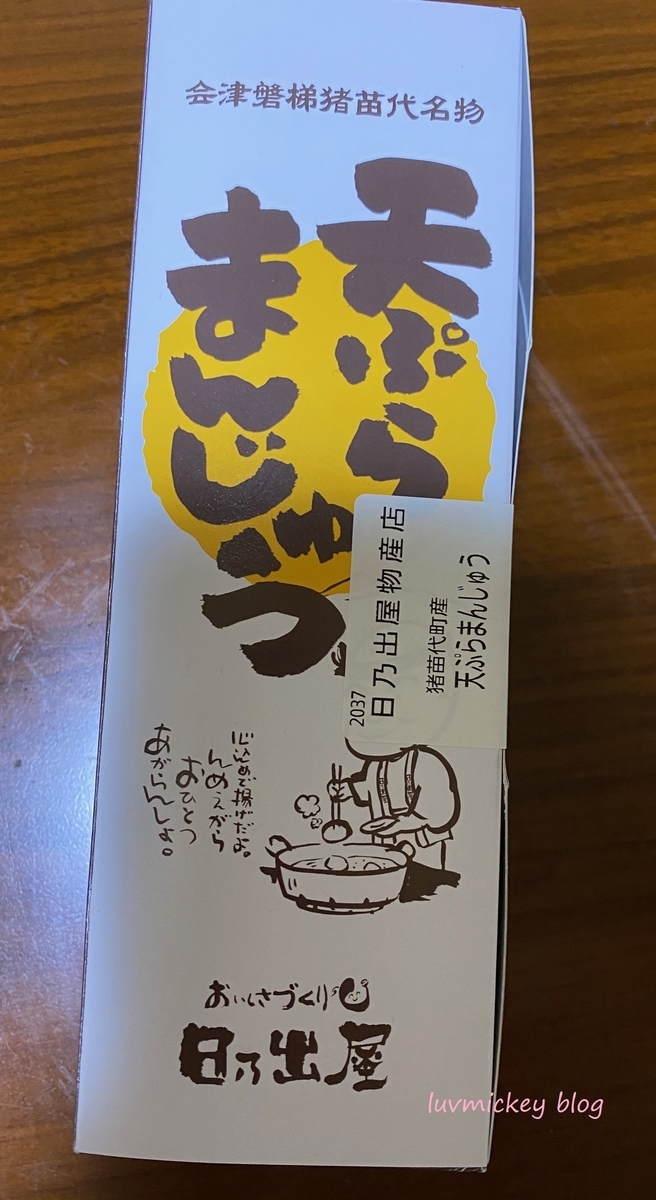 会津磐梯猪苗代名物
天ぷら
まんじゅう
2037
日乃出屋物産店
猪苗代町産
天ぷらまんじゅう
心込めで揚げだよ。
んめえがら
おひとつ
あがらんしょ。
おいしさづくり
日乃出屋
luvmickey blog